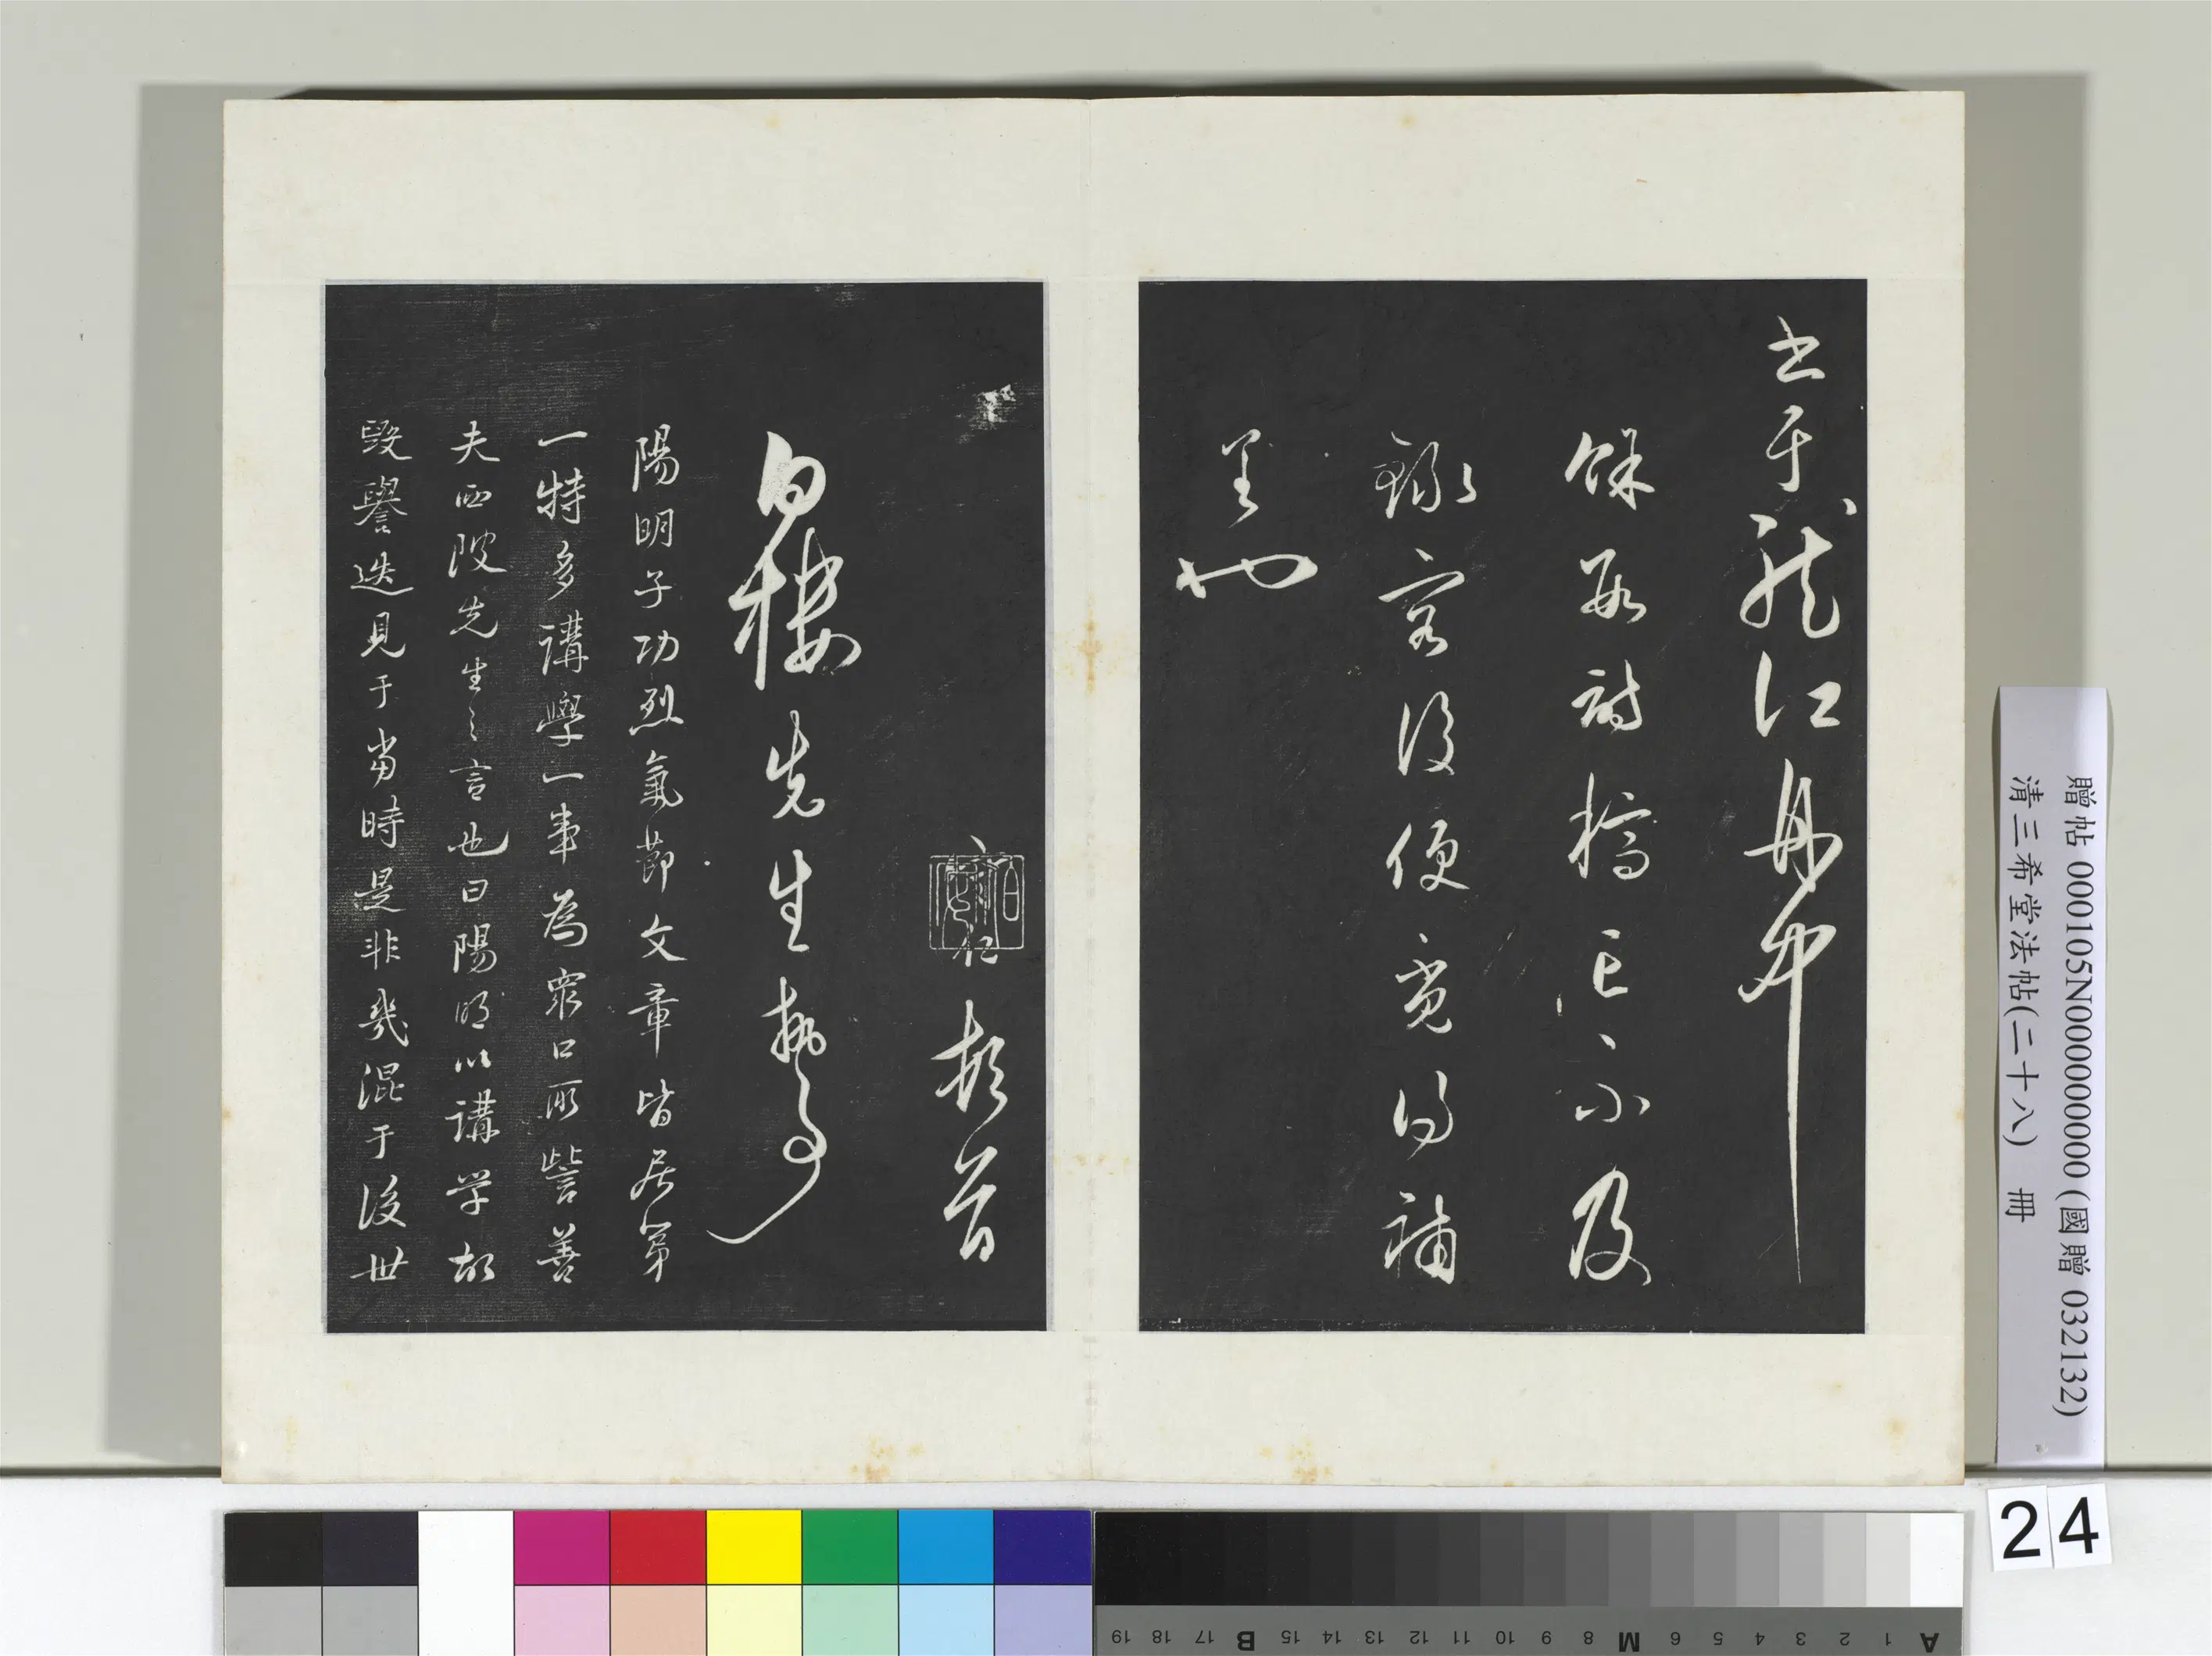 書于龍江舟中
餘數詩稿亡不及
錄容後便覓得補
呈也
守仁頓首
白樓先生執事
陽明子功烈氣節文章皆居第
一特多講學一事為衆口所訾善
夫西陂先生之言也曰陽明以講学故
毀譽迭見于當時是非幾混于後世
贈帖 000105N000000000 (國贈 032132)
清三希堂法帖(二十八) 冊
24
A 1 2 3 4 5 6 M 8 9 10 11 12 13 14 15 B 17 18 19